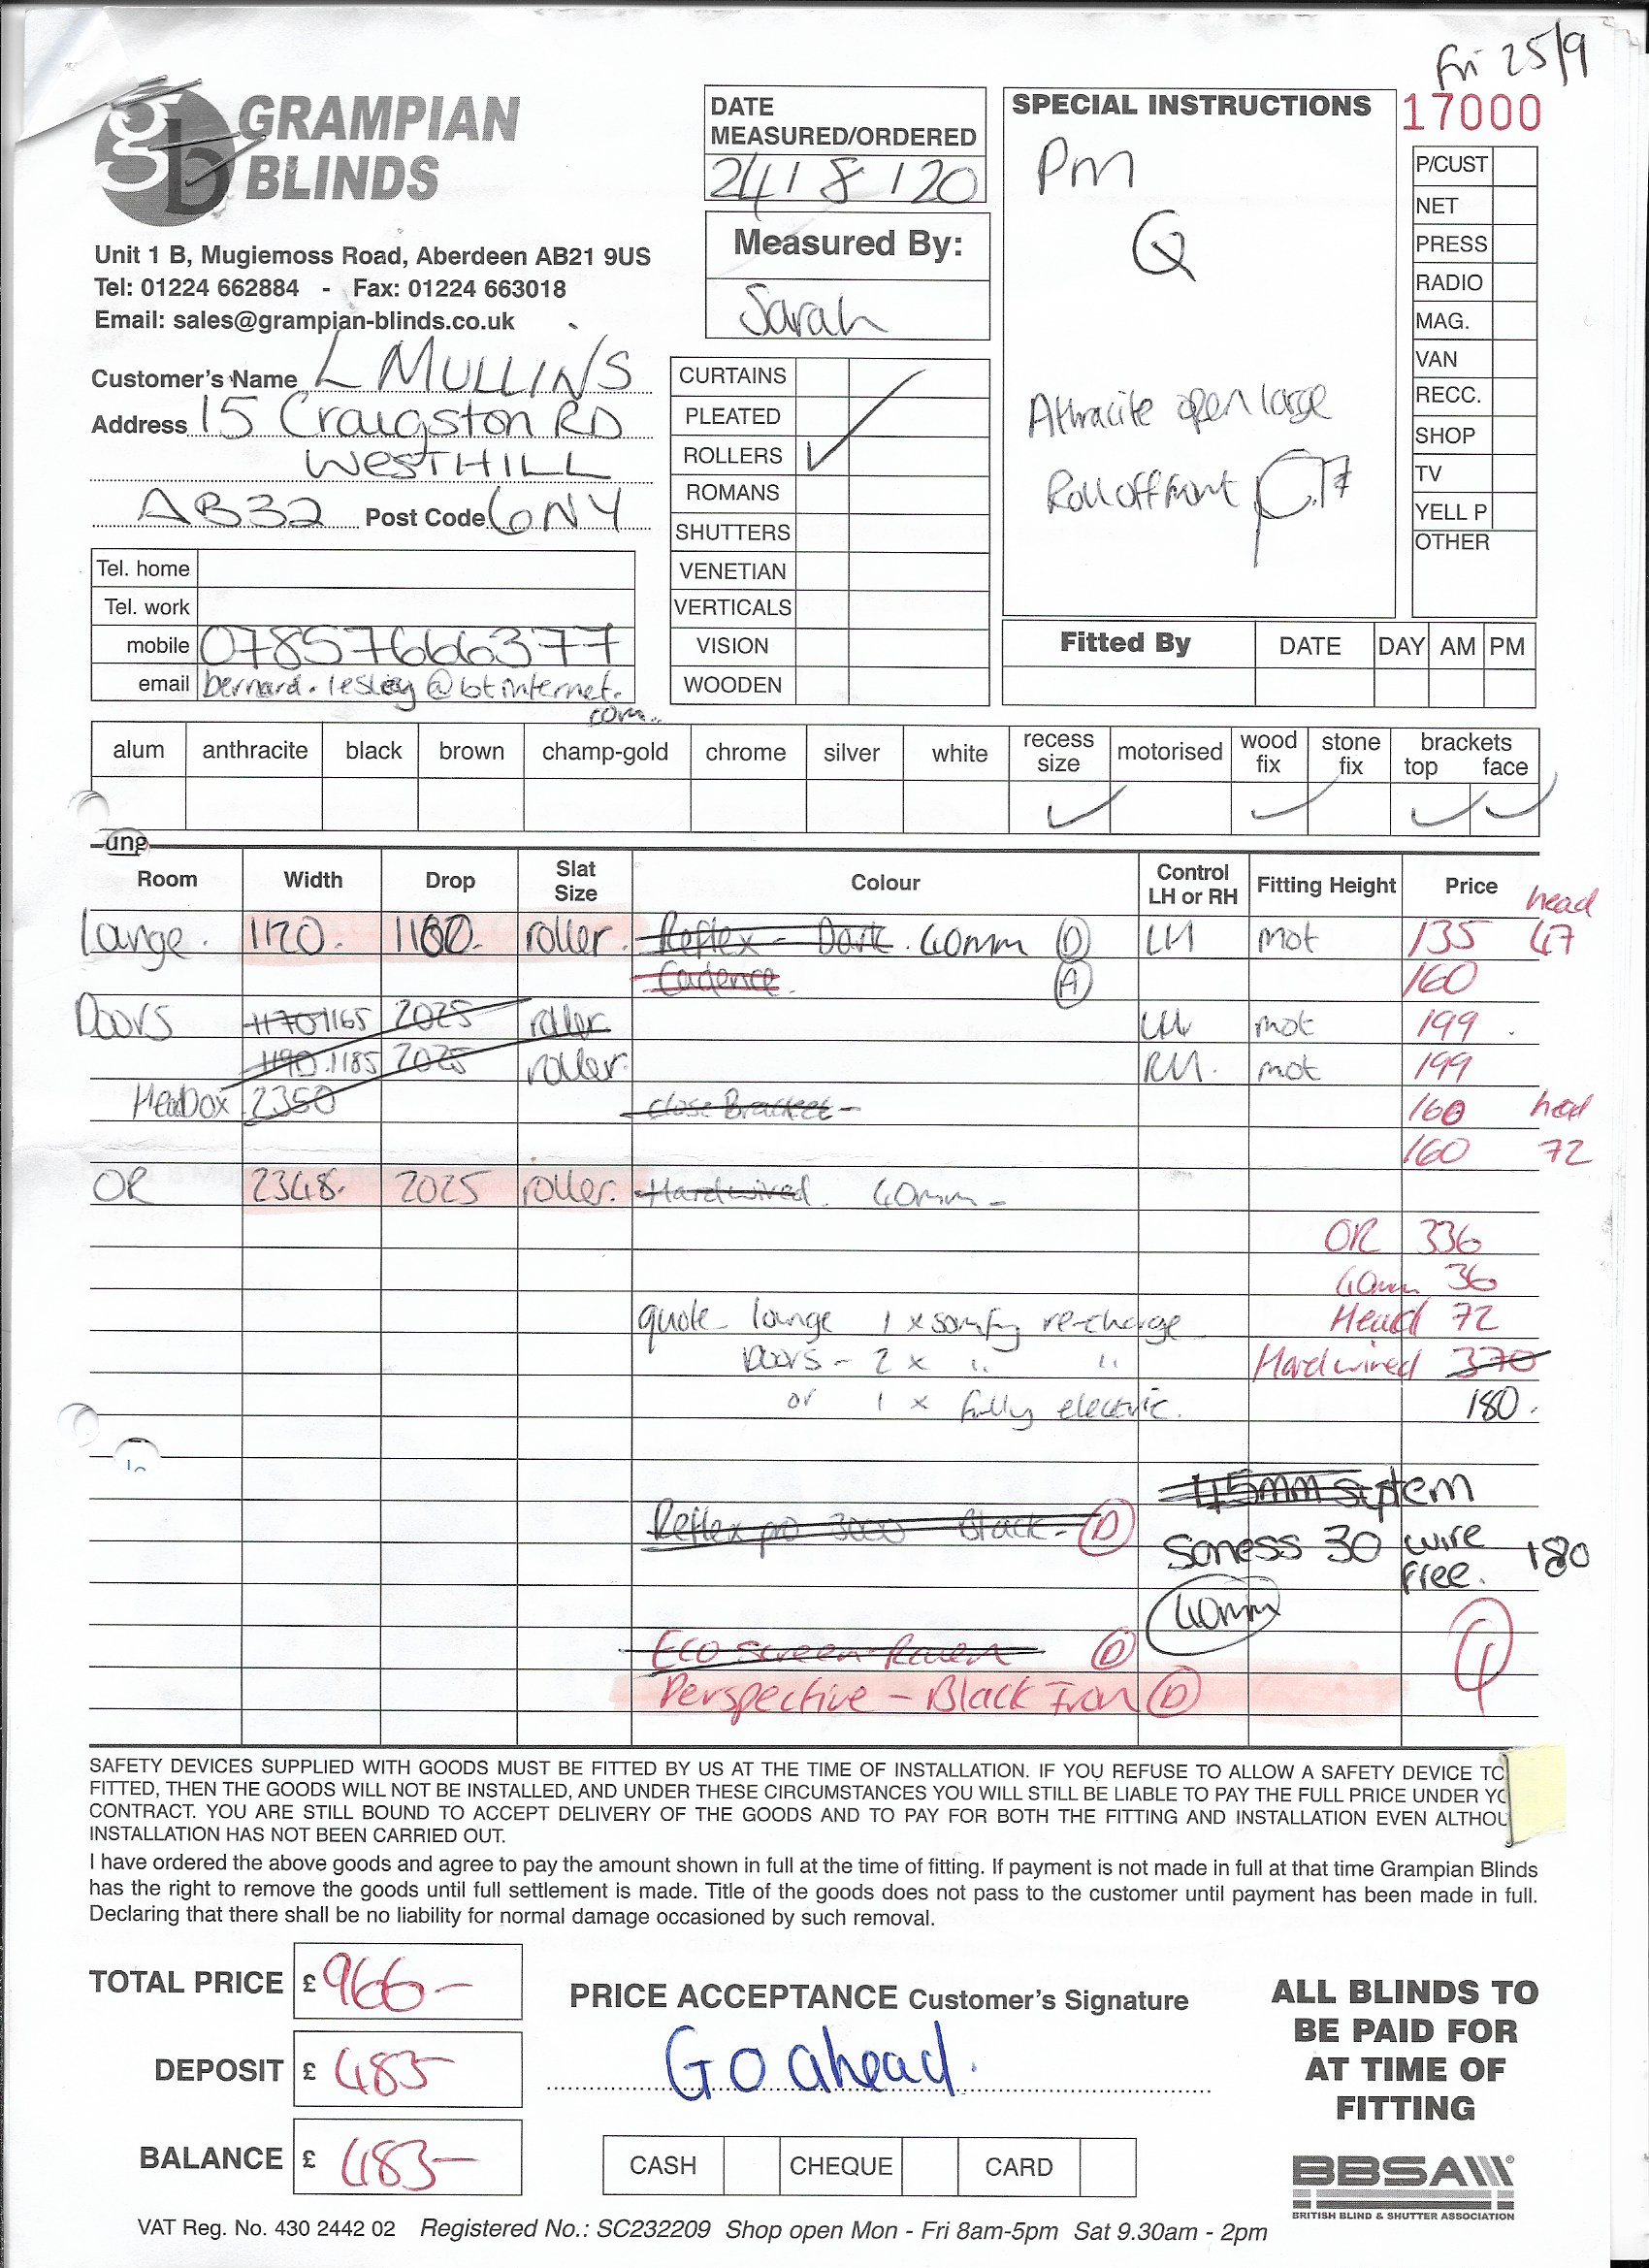 Fri 25/9
GRAMPIAN
BLINDS
Unit 1 B, Mugiemoss Road, Aberdeen AB21 9US
Tel: 01224 662884 - Fax: 01224 663018
Email: sales@grampian-blinds.co.uk
Customer's Name L MULLINS
Address 15 Craigston RD
WESTHILL
AB32 Post Code 6NY
Tel. home
Tel. work
mobile 07857666377
email bernard.lesley@btinternet.
com.
DATE
MEASURED/ORDERED
24/8/20
Measured By:
Sarah
CURTAINS
PLEATED
ROLLERS ✓
ROMANS
SHUTTERS
VENETIAN
VERTICALS
VISION
WOODEN
SPECIAL INSTRUCTIONS
Pm
Q
Athracite open large
Roll off front
17000
P/CUST
NET
PRESS
RADIO
MAG.
VAN
RECC.
SHOP
TV
YELL P
OTHER
Fitted By DATE DAY AM PM
alum anthracite black brown champ-gold chrome silver white recess size motorised wood fix stone fix brackets top face
✓ ✓ ✓ ✓
ung
Room Width Drop Slat Size Colour Control LH or RH Fitting Height Price head
Lounge. 1120. 1180. roller. Reflex - Dark. 40mm D LH mot 135 47
Cadence. A 160
Doors 1170 1165 2025 roller LH mot 199
1190.1185 2025 roller. RH. mot 199
Headbox 2350 close Bracket - 160 head
160 72
OR 2348. 2025 roller. Hardwired. 40mm -
OR 336
40mm 36
quote lounge 1 x somfy re-charge Head 72
Doors - 2 x " " Hardwired 370
or 1 x fully electric. 180.
45mm system
Reflex pro 3000 Black - D
Soness 30 wire free. 180
40mm
Eco Screen Raven D
Perspective - Black Iron D
SAFETY DEVICES SUPPLIED WITH GOODS MUST BE FITTED BY US AT THE TIME OF INSTALLATION. IF YOU REFUSE TO ALLOW A SAFETY DEVICE TO
FITTED, THEN THE GOODS WILL NOT BE INSTALLED, AND UNDER THESE CIRCUMSTANCES YOU WILL STILL BE LIABLE TO PAY THE FULL PRICE UNDER YO
CONTRACT. YOU ARE STILL BOUND TO ACCEPT DELIVERY OF THE GOODS AND TO PAY FOR BOTH THE FITTING AND INSTALLATION EVEN ALTHOU
INSTALLATION HAS NOT BEEN CARRIED OUT.
I have ordered the above goods and agree to pay the amount shown in full at the time of fitting. If payment is not made in full at that time Grampian Blinds
has the right to remove the goods until full settlement is made. Title of the goods does not pass to the customer until payment has been made in full.
Declaring that there shall be no liability for normal damage occasioned by such removal.
TOTAL PRICE £ 966-
DEPOSIT £ 483-
BALANCE £ 483-
PRICE ACCEPTANCE Customer's Signature
Go ahead.
CASH CHEQUE CARD
ALL BLINDS TO
BE PAID FOR
AT TIME OF
FITTING
BBSA
BRITISH BLIND & SHUTTER ASSOCIATION
VAT Reg. No. 430 2442 02 Registered No.: SC232209 Shop open Mon - Fri 8am-5pm Sat 9.30am - 2pm